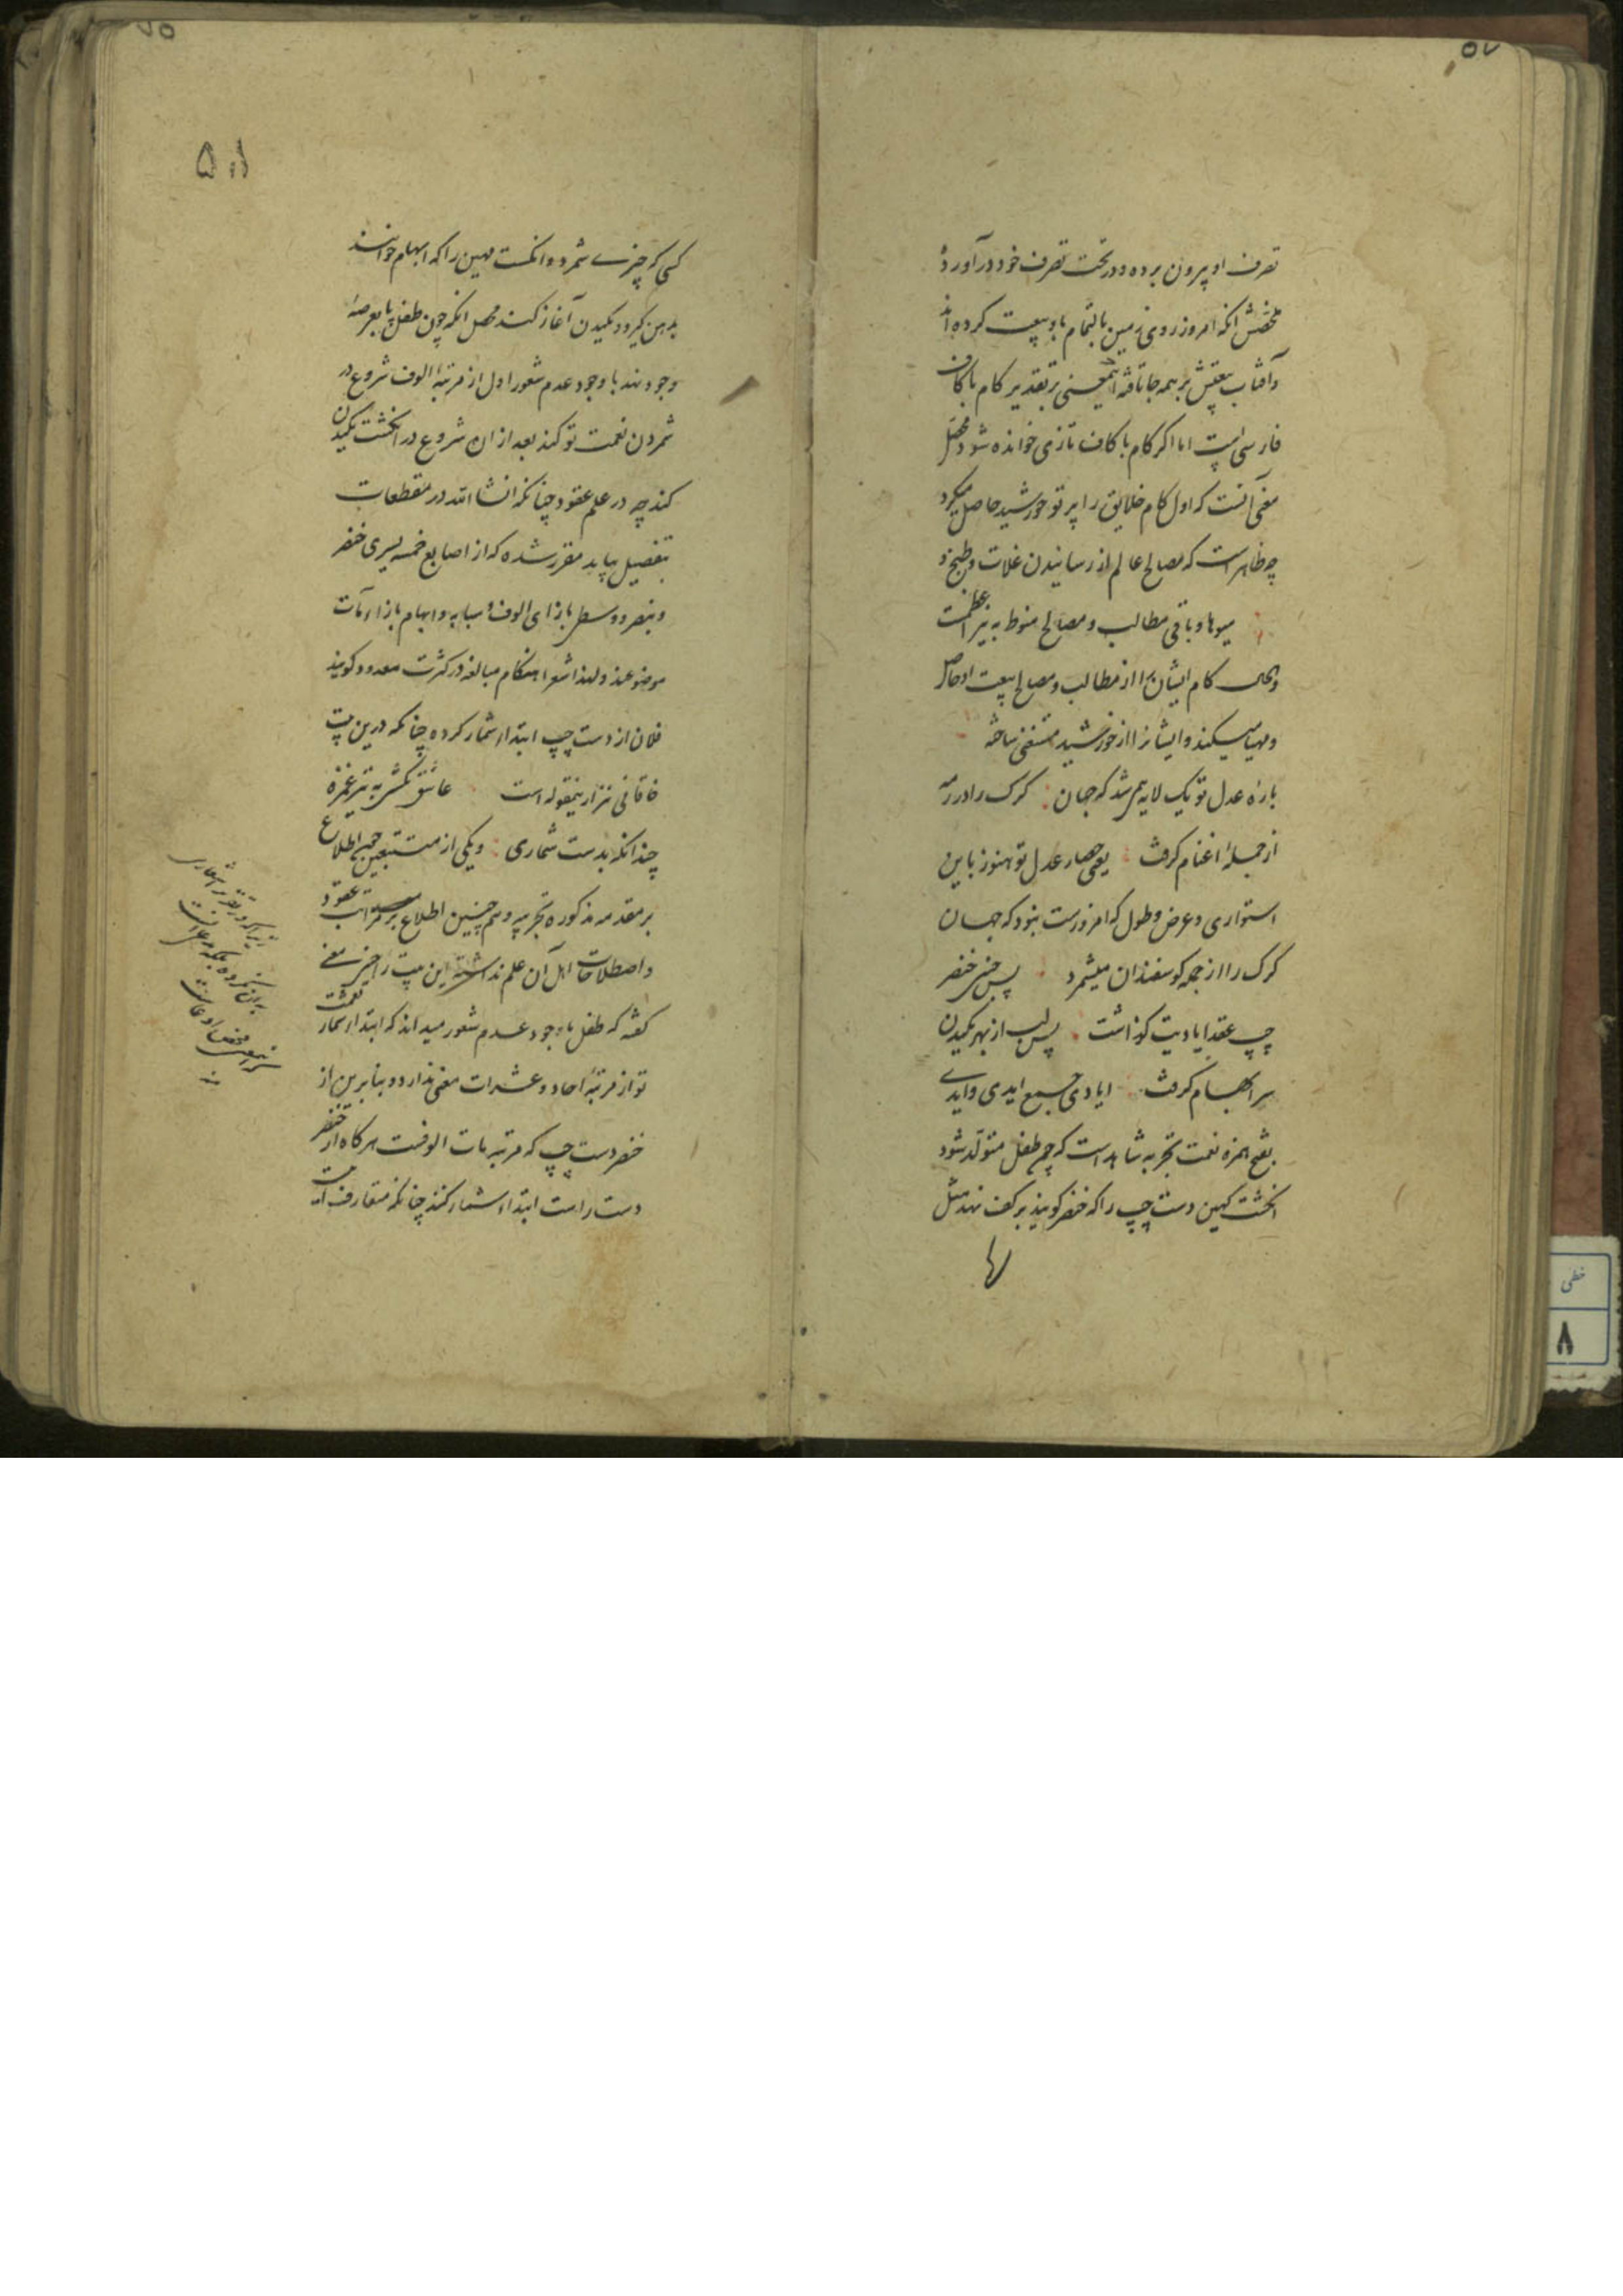 ۵۷
تصرف او بیرون برده و در تحت تصرف خود درآورده
ملخصش انکه امروز روی زمین بالتمام باو بیعت کرده اند
و آفتاب بیعتش بر همه جا تافته این معنی بر تقدیر کام با کاف
فارسی است اما اگر کام با کاف تازی خوانده شود محصل
معنی آنست که اول کام خلایق را پرتو خورشید حاصل میکرد
چه ظاهر است که مصالح عالم از رسانیدن غلات و طبخ
میوها و باقی مطالب و مصالح منوط به نیر اعظمست
و الحال کام ایشان را از مطالب و مصالح بیعت او حاصل
و مهیا میکند و ایشانرا از خورشید مستغنی ساخته
باره عدل تو یک لایه همی شد که جهان کرک را در رمه
از جمله اغنام کرفت یعنی حصار عدل تو هنوز باین
استواری و عرض و طول که امروزست نبود که جهان
کرک را از جمله کوسفندان میشمرد پس خنصر
چپ عقد ایادیت کذاشت پس لب از بهر مکیدن
سر ابهام کرفت ایادی جمع ایدی و ایدی
بفتح همزه نعمت تجربه شاهد است که چون طفل متولد شود
انکشت کهین دست چپ را که خنصر کویند بر کف نهد مثل
۵۸
کسی که چیزی شمرد و انکشت مهین را که ابهام خوانند
بدهن کیرد و مکیدن آغاز کند محصل انکه چون طفل پا بعرصهٔ
وجود نهد با وجود عدم شعور اول از مرتبهٔ الوف شروع در
شمردن نعمت تو کند بعد از ان شروع در انکشت مکیدن
کند چه در علم عقود چنانکه انشا الله در مقطعات
بتفصیل بیاید مقرر شده که از اصابع خمسه یسری خنصر
و بنصر و وسطی بازای الوف و سبابه و ابهام بازاء مآت
موضوعند و لهذا شعرا هنکام مبالغه در کثرت معدود کویند
فلان از دست چپ ابتداء شمار کرده چنانکه درین بیت
خاقانی نیز ازینمقوله است عاشق بکشی به تیر غمزه
چندانکه بدست شماری و یکی از متتبعین چون اطلاع
بر مقدمه مذکوره تجربیه و هم چنین اطلاع بر مراتب عقود
و اصطلاحات اهل آن علم نداشته این بیت را چنین معنی
کفته که طفل با وجود عدم شعور میداند که ابتداء شمار نعمت
تو از مرتبهٔ احاد و عشرات معنی ندارد و بنابرین از
خنصر دست چپ که مرتبه مآت الوفست هرکاه از خنصر
دست راست ابتداء شمار کنند چنانکه متعارف است
خطی
۸